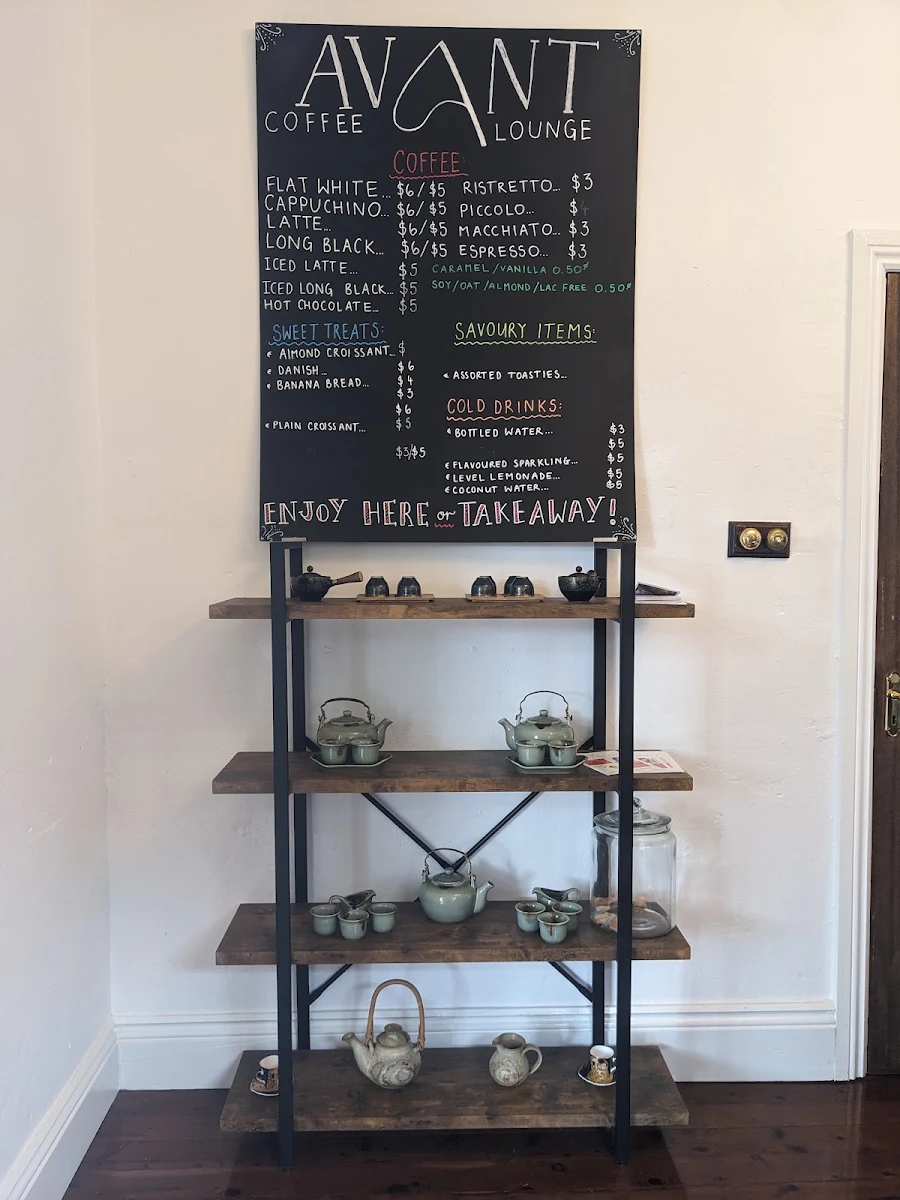 AVANT
COFFEE LOUNGE
COFFEE:
FLAT WHITE... $6/$5 RISTRETTO... $3
CAPPUCHINO... $6/$5 PICCOLO... $
LATTE... $6/$5 MACCHIATO... $3
LONG BLACK... $6/$5 ESPRESSO... $3
ICED LATTE... $5 CARAMEL/VANILLA 0.50¢
ICED LONG BLACK... $5 SOY/OAT/ALMOND/LAC FREE 0.50¢
HOT CHOCOLATE... $5
SWEET TREATS:
ALMOND CROISSANT... $
DANISH... $6
BANANA BREAD... $4
$3
$6
PLAIN CROISSANT... $5
$3/$5
SAVOURY ITEMS:
ASSORTED TOASTIES...
COLD DRINKS:
BOTTLED WATER... $3
$5
FLAVOURED SPARKLING... $5
LEVEL LEMONADE... $5
COCONUT WATER... $5
ENJOY HERE or TAKEAWAY!